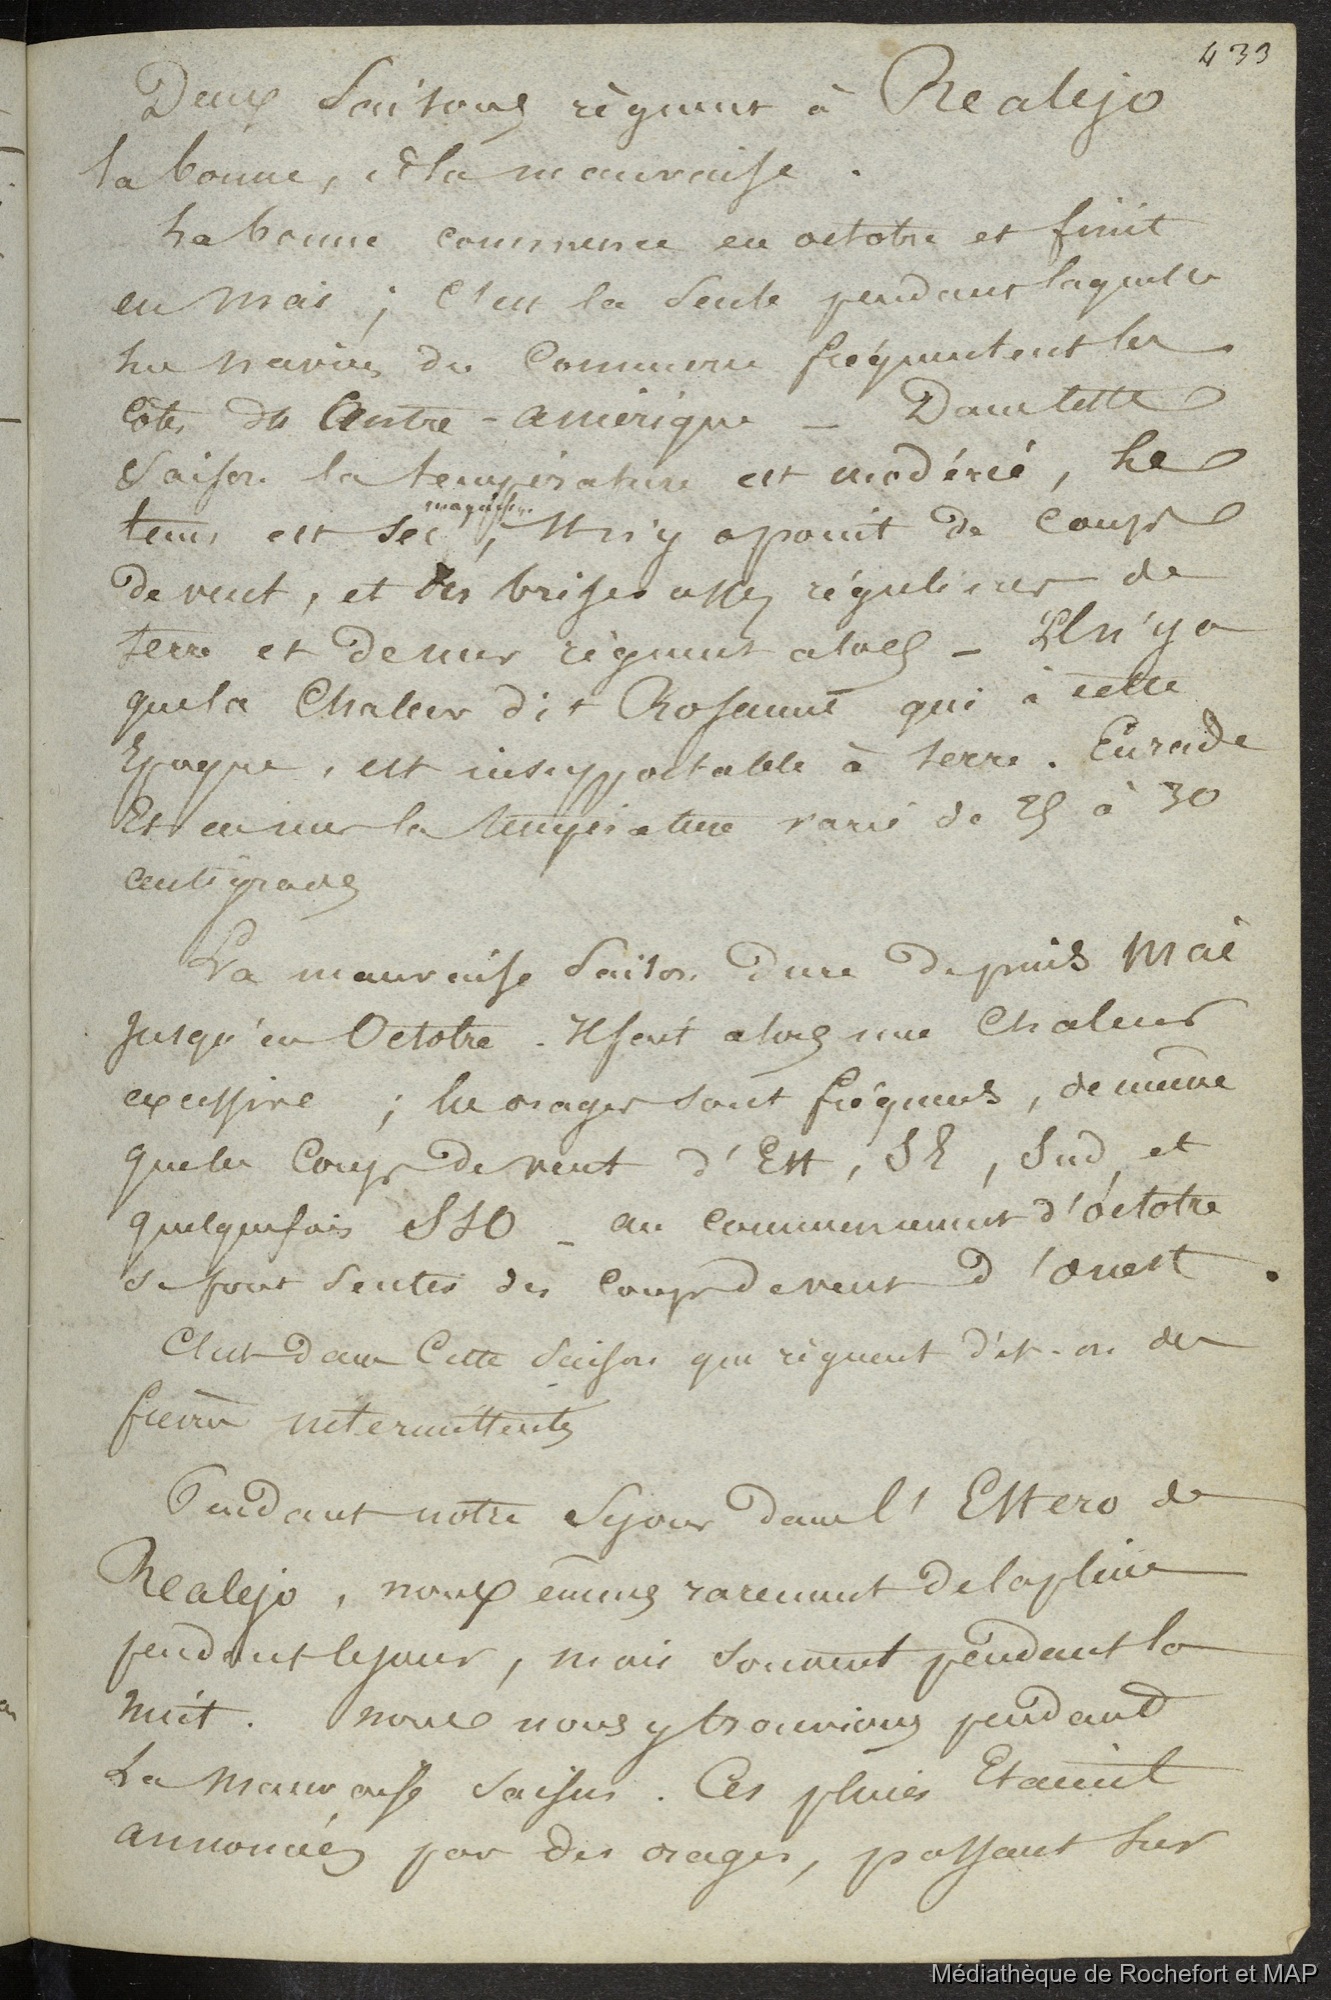 433
Deux saisons règnent à Realejo
la bonne, et la mauvaise.
La bonne commence en octobre et finit
en mai ; C'est la seule pendant laquelle
les navires du Commerce fréquentent les
Côtes du Centre-amérique — Dans cette
saison la température est modérée, le
magnifique
tems est sec, Il n'y a point de coups
de vent, et des brises assez régulières de
terre et de mer règnent alors — Il n'y a
que la Chaleur dit Rosamel qui à cette
Epoque, est insupportable à terre. En rade
Et en mer la température varie de 25 à 30
centigrades
La mauvaise saison dure depuis Mai
jusqu'en Octobre. Il fait alors une Chaleur
excessive ; les orages sont fréquens, de même
que les Coups de vent d'Est, SE, Sud, et
quelquefois SSO — au commencement d'Octobre
se font sentir des coups de vent d'Ouest.
C'est dans Cette saison que règnent dit-on des
fièvres intermittentes
Pendant notre séjour dans l'Estero de
Realejo, nous eûmes rarement de la pluie
pendant le jour, mais souvent pendant la
nuit. nous nous y trouvions pendant
La mauvaise saison. Ces pluies Etaient
annoncées par des orages, passant sur
Médiathèque de Rochefort et MAP